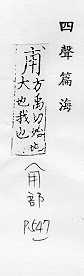 四聲篇海
方禹切始也
大也我也
〈用部
P.547